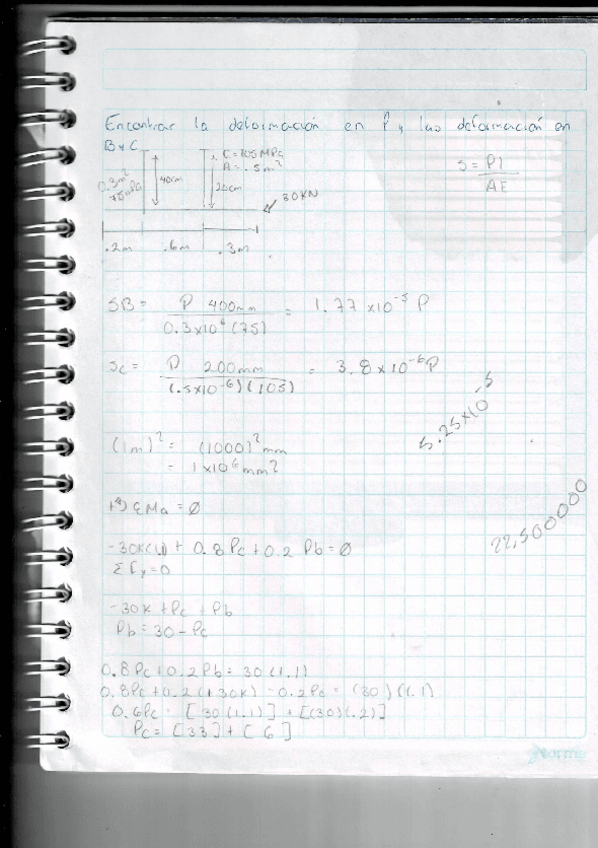 Encontrar la deformación en P y las deformación en
B y C
C = 105 MPa
A = .5 m²
0.3m²
75mPa
40cm
20cm
30KN
.2m .6m .3m
S = Pl / AE
SB = P 400mm / 0.3x10⁶(75) = 1.77 x10⁻⁵ P
Sc = P 200mm / (.5x10⁻⁶)(105) = 3.8x10⁻⁶P
5.25x10⁻⁵
(1m)² = (1000)²mm
= 1x10⁶mm²
22,500000
+ ΣMa = 0
-30K(1.1) + 0.8Pc + 0.2 Pb = 0
ΣFy = 0
-30K + Pc + Pb
Pb = 30 - Pc
0.8Pc + 0.2Pb = 30(1.1)
0.8Pc + 0.2(+30K) - 0.2Pc = (30)(1.1)
0.6Pc = [30(1.1)] + [(30)(.2)]
Pc = [33] + [6]
norma